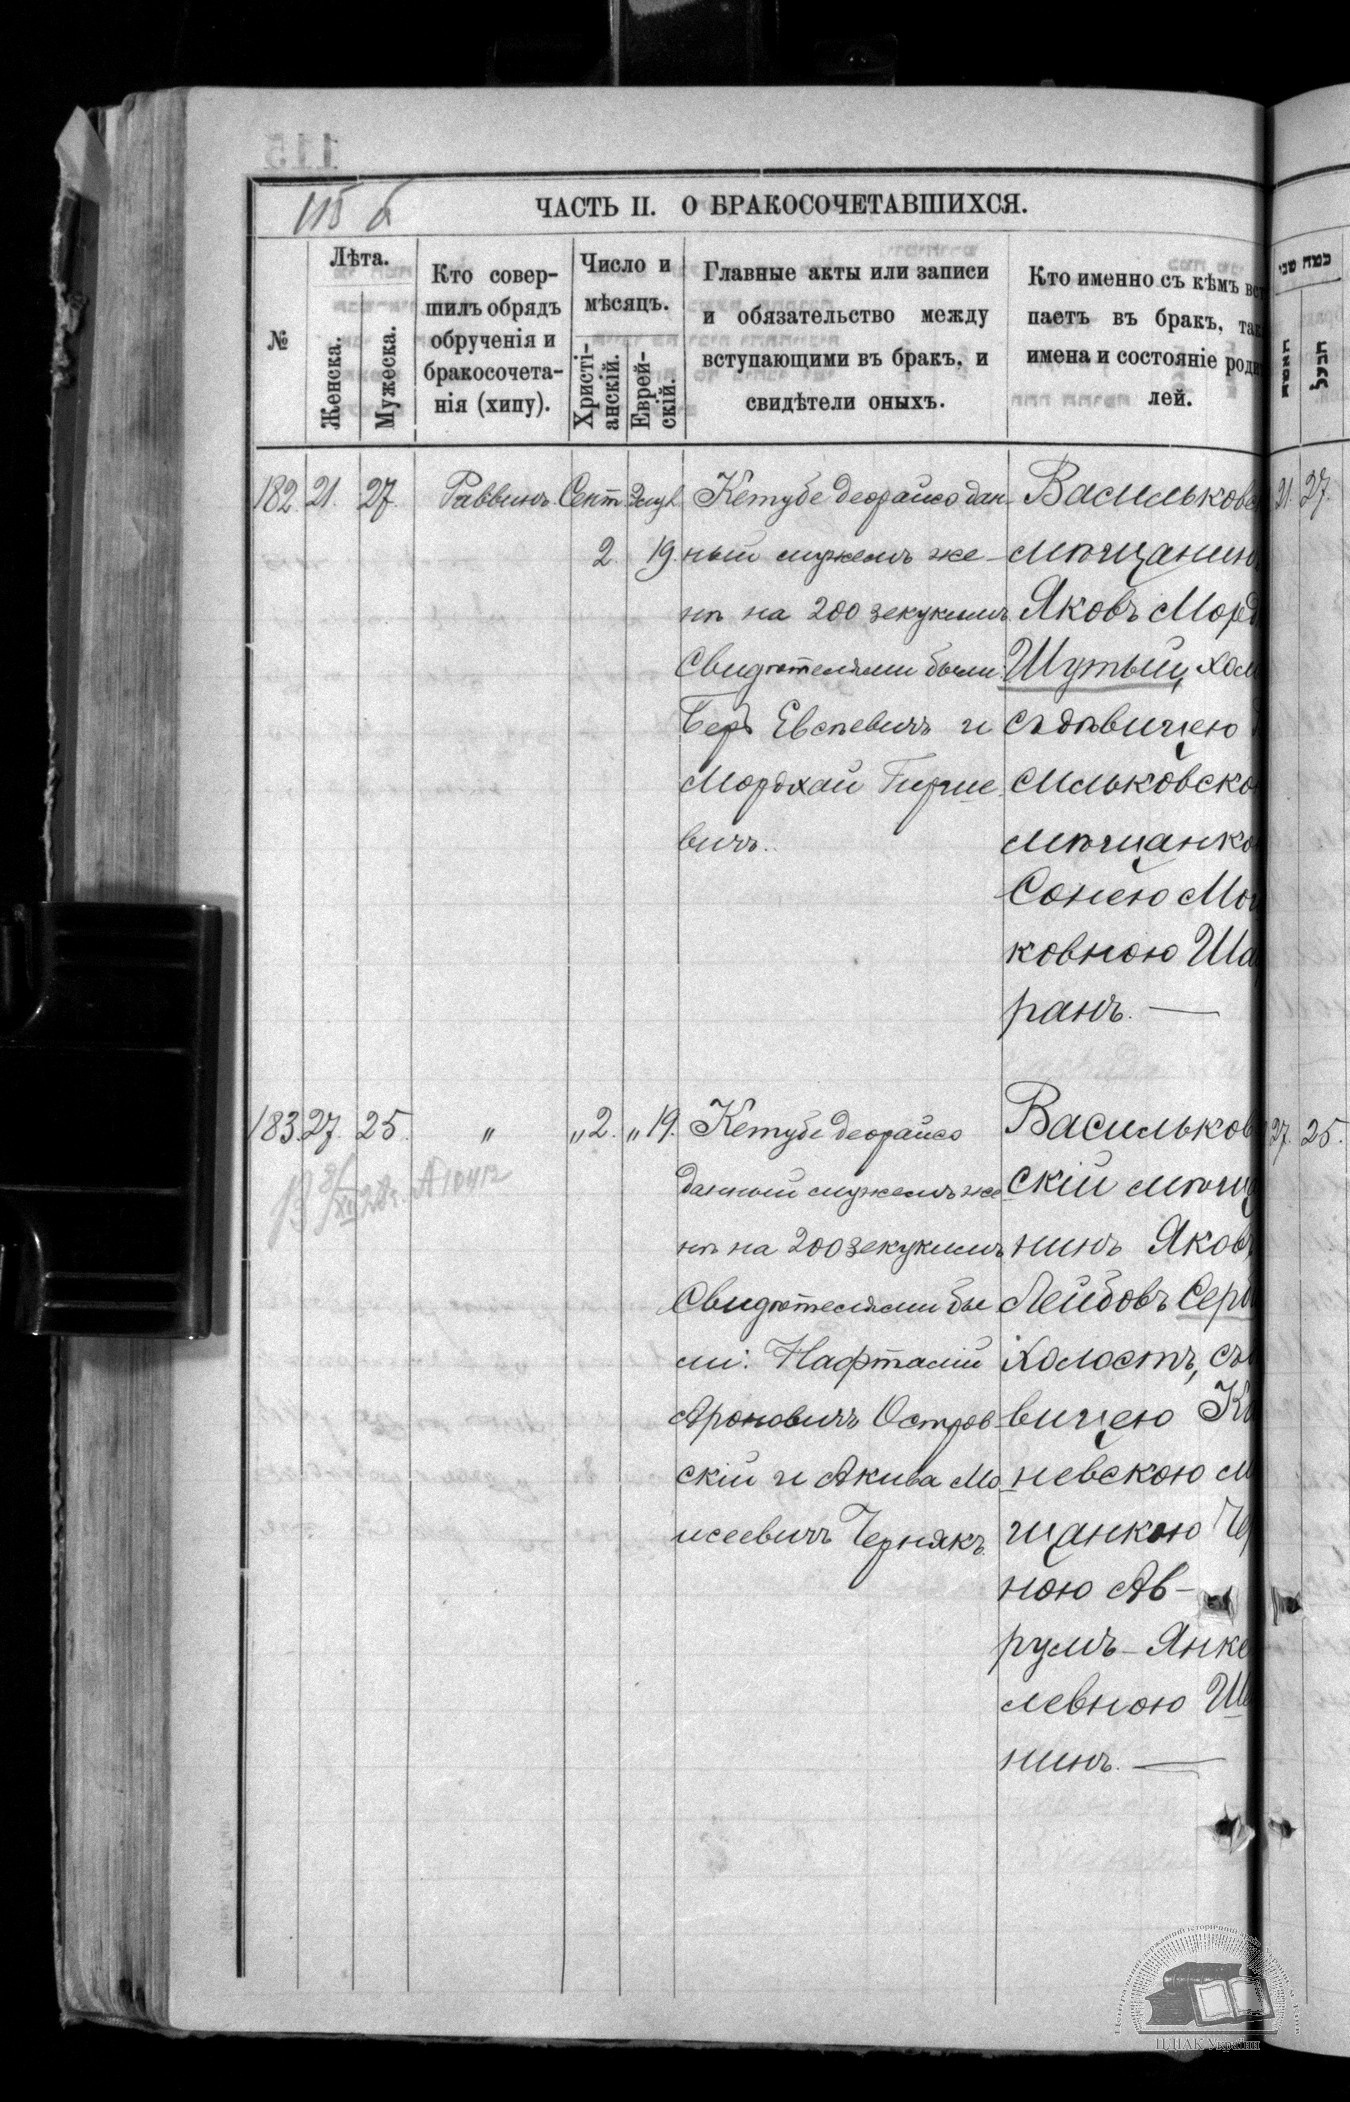 115 б
ЧАСТЬ II. О БРАКОСОЧЕТАВШИХСЯ.
№
Лѣта.
Женска.
Мужеска.
Кто совер-
шилъ обрядъ
обрученія и
бракосочета-
нія (хипу).
Число и
мѣсяцъ.
Христі-
анскій.
Еврей-
скій.
Главные акты или записи
и обязательство между
вступающими въ бракъ, и
свидѣтели оныхъ.
Кто именно съ кѣмъ вст
паетъ въ бракъ, так
имена и состояніе роди
лей.
כמה שני
182. 21. 27. Раввинъ. Сент 2. Элул 19.
Кетубе деорайсо дан-
ный мужемъ же-
нѣ на 200 зекукимъ
Свидѣтелями были:
Беръ Евсѣевичъ и
Мордхай Гирше-
вичъ.
Васильковс
мѣщанин
Яковъ Морд
Шутый, хол
съ дѣвицею
сильковско
мѣщанко
Сонею Мо
ковною Ша
ранъ. —
21. 27.
183. 27. 25. " " 2. " 19.
Кетубе деорайсо
данный мужемъ же-
нѣ на 200 зекукимъ
Свидѣтелями бы
ли: Нафталій
Ароновичъ Остров-
скій и Акива Мо-
исеевичъ Чернякъ.
Васильков
скій мѣщ
нинъ Яковъ
Лейбовъ Сер
холостъ, съ
вицею К
невскою м
щанкою Че
ною Ав-
румъ-Янке
левною Ш
нинъ. —
27. 25.
ЦДІАК України